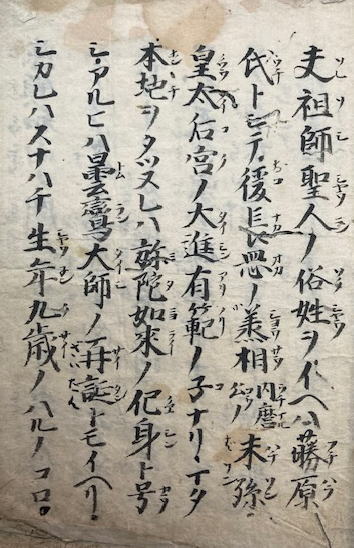 夫祖師聖人ノ俗姓ヲイヘハ藤原
氏トシテ、後長岡ノ丞相内麿公ノ末孫
皇太后宮ノ大進有範ノ子ナリ・マタ
本地ヲタツヌレハ弥陀如来ノ化身ト号
シ・アルヒハ曇鸞大師ノ再誕トモイヘリ・
シカレハスナハチ生年九歳ノハルノコロ。